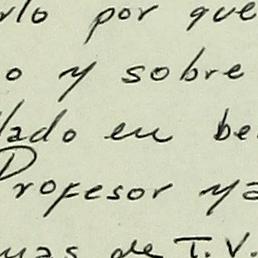 rlo por que
o y sobre
lado en be
Profesor ya
mas de T.V.